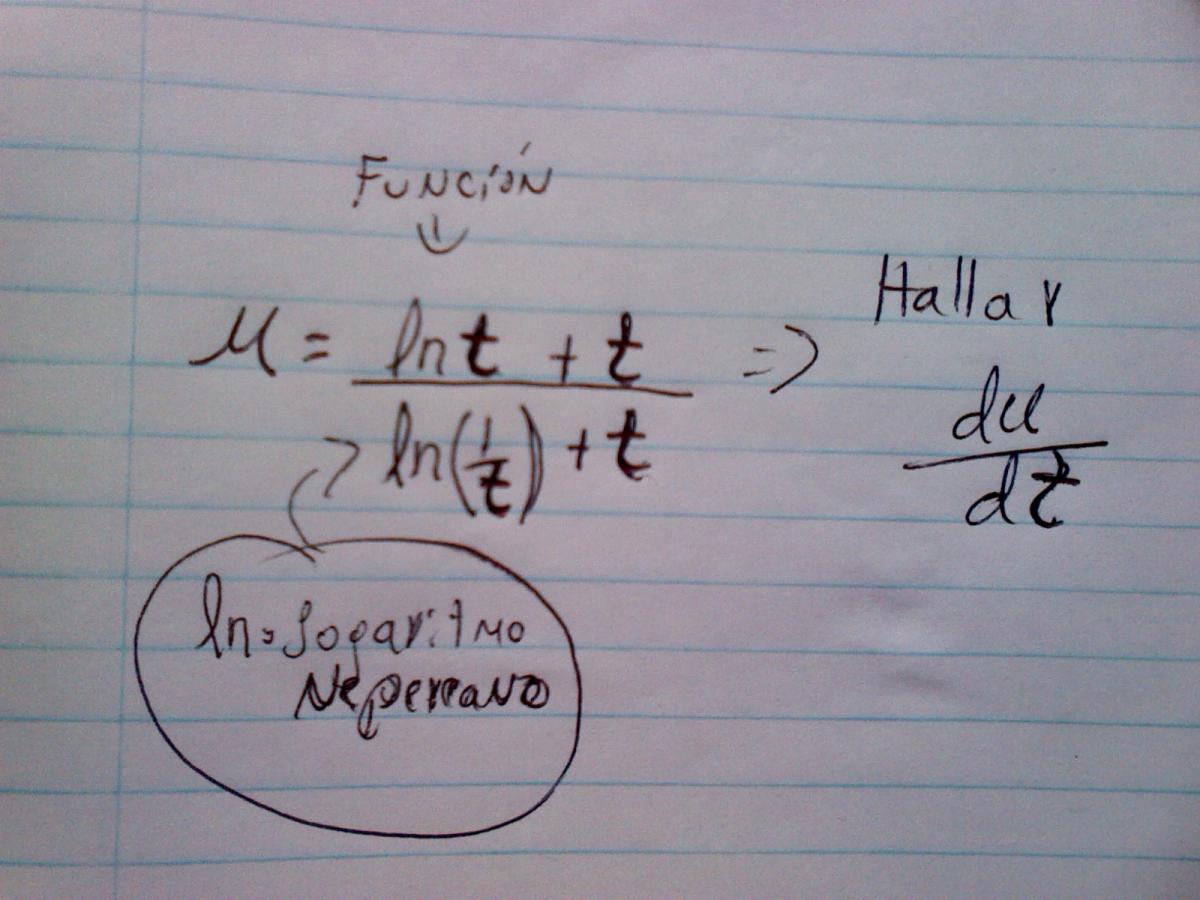 Función
u = ln t + t / ln(1/t) + t => Hallar du/dt
ln = Logaritmo
Nepereano